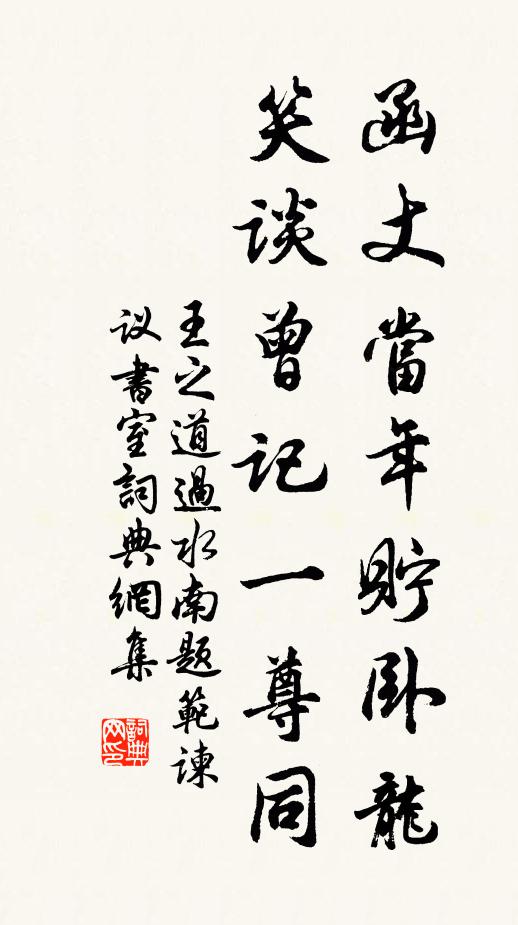 函丈當年貯臥龍
笑談曾記一尊同
王之道過水南題範諫
议書室詞典網集
詞典网印